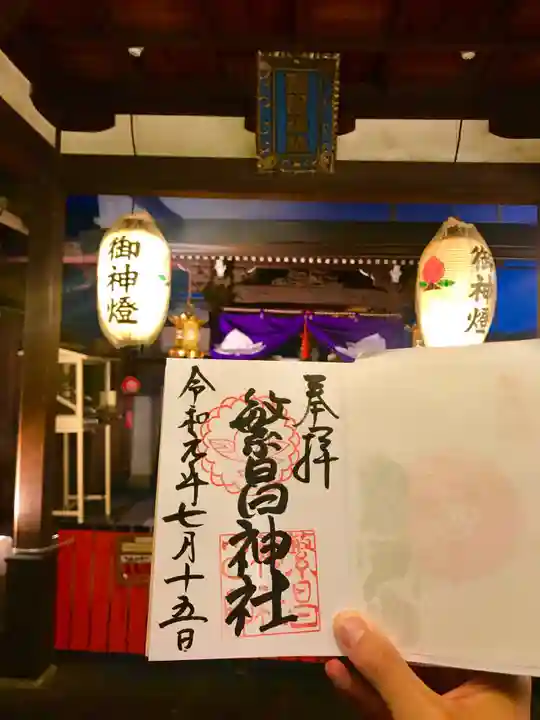 御神燈
御神燈
奉拝
繁昌神社
令和元年七月十五日